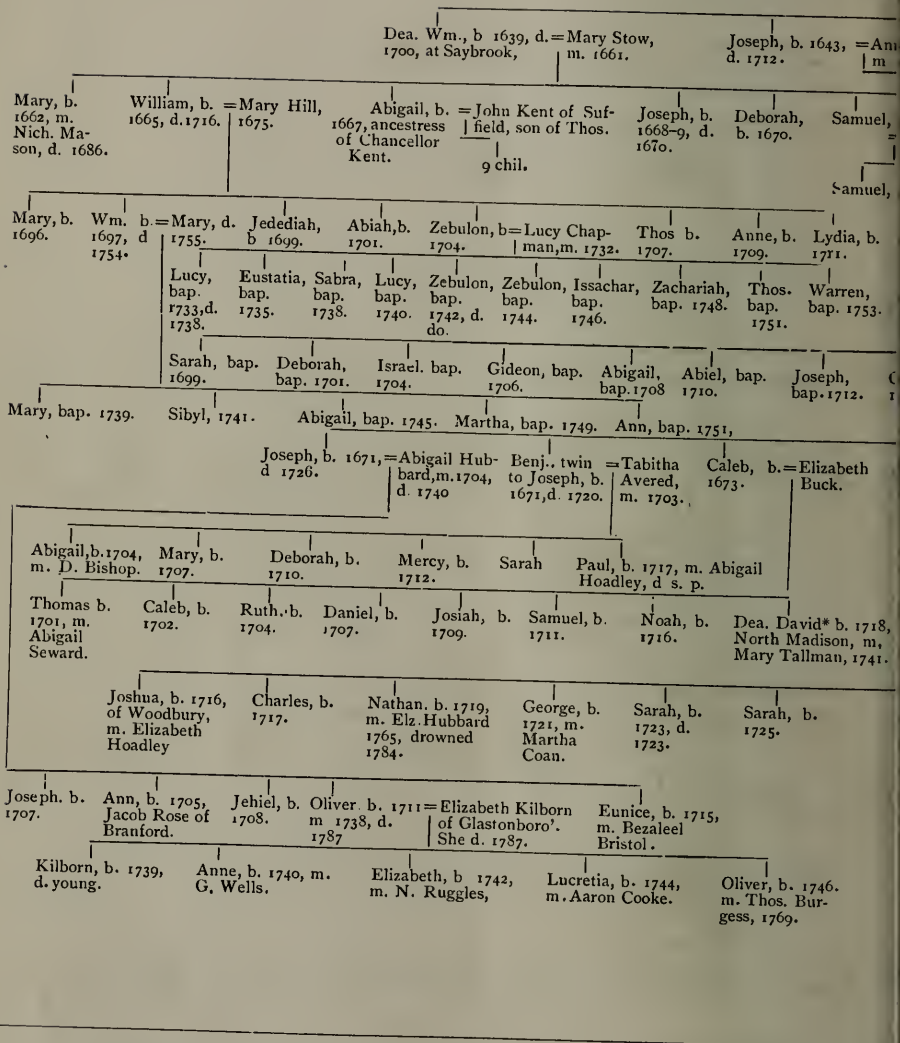 Dea. Wm., b 1639, d.=Mary Stow,
1700, at Saybrook, | m. 1661.
Joseph, b. 1643, =
d. 1712. | m
Mary, b.
1662, m.
Nich. Ma-
son, d. 1686.
William, b. =Mary Hill,
1665, d.1716. | 1675.
Abigail, b. =John Kent of Suf-
1667, ancestress | field, son of Thos.
of Chancellor
Kent.
9 chil.
Joseph, b.
1668-9, d.
1670.
Deborah,
b. 1670.
Samuel,
=
Samuel,
Mary, b.
1696.
Wm. b.=Mary, d.
1697, d | 1755.
1754.
Jedediah,
b 1699.
Abiah,b.
1701.
Zebulon, b=Lucy Chap-
1704. | man,m. 1732.
Thos b.
1707.
Anne, b.
1709.
Lydia, b.
1711.
Lucy,
bap.
1733,d.
1738.
Eustatia,
bap.
1735.
Sabra,
bap.
1738.
Lucy,
bap.
1740.
Zebulon,
bap.
1742, d.
do.
Zebulon,
bap.
1744.
Issachar,
bap.
1746.
Zachariah,
bap. 1748.
Thos.
bap.
1751.
Warren,
bap. 1753.
Sarah, bap.
1699.
Deborah,
bap. 1701.
Israel. bap.
1704.
Gideon, bap.
1706.
Abigail,
bap.1708
Abiel, bap.
1710.
Joseph,
bap.1712.
Mary, bap. 1739.
Sibyl, 1741.
Abigail, bap. 1745.
Martha, bap. 1749.
Ann, bap. 1751,
Joseph, b. 1671,=Abigail Hub-
d 1726. | bard,m.1704,
d. 1740
Benj., twin =Tabitha
to Joseph, b. | Avered,
1671,d. 1720. | m. 1703.
Caleb, b.=Elizabeth
1673. | Buck.
Abigail,b.1704,
m. D. Bishop.
Mary, b.
1707.
Deborah, b.
1710.
Mercy, b.
1712.
Sarah
Paul, b. 1717, m. Abigail
Hoadley, d s. p.
Thomas b.
1701, m.
Abigail
Seward.
Caleb, b.
1702.
Ruth, b.
1704.
Daniel, b.
1707.
Josiah, b.
1709.
Samuel, b.
1711.
Noah, b.
1716.
Dea. David* b. 1718,
North Madison, m,
Mary Tallman, 1741.
Joshua, b. 1716,
of Woodbury,
m. Elizabeth
Hoadley
Charles, b.
1717.
Nathan. b. 1719,
m. Elz.Hubbard
1765, drowned
1784.
George, b.
1721, m.
Martha
Coan.
Sarah, b.
1723, d.
1723.
Sarah, b.
1725.
Joseph. b.
1707.
Ann, b. 1705,
Jacob Rose of
Branford.
Jehiel, b.
1708.
Oliver. b. 1711=Elizabeth Kilborn
m 1738, d. | of Glastonboro'.
1787 | She d. 1787.
Eunice, b. 1715,
m. Bezaleel
Bristol.
Kilborn, b. 1739,
d. young.
Anne, b. 1740, m.
G. Wells.
Elizabeth, b 1742,
m. N. Ruggles,
Lucretia, b. 1744,
m. Aaron Cooke.
Oliver, b. 1746.
m. Thos. Bur-
gess, 1769.